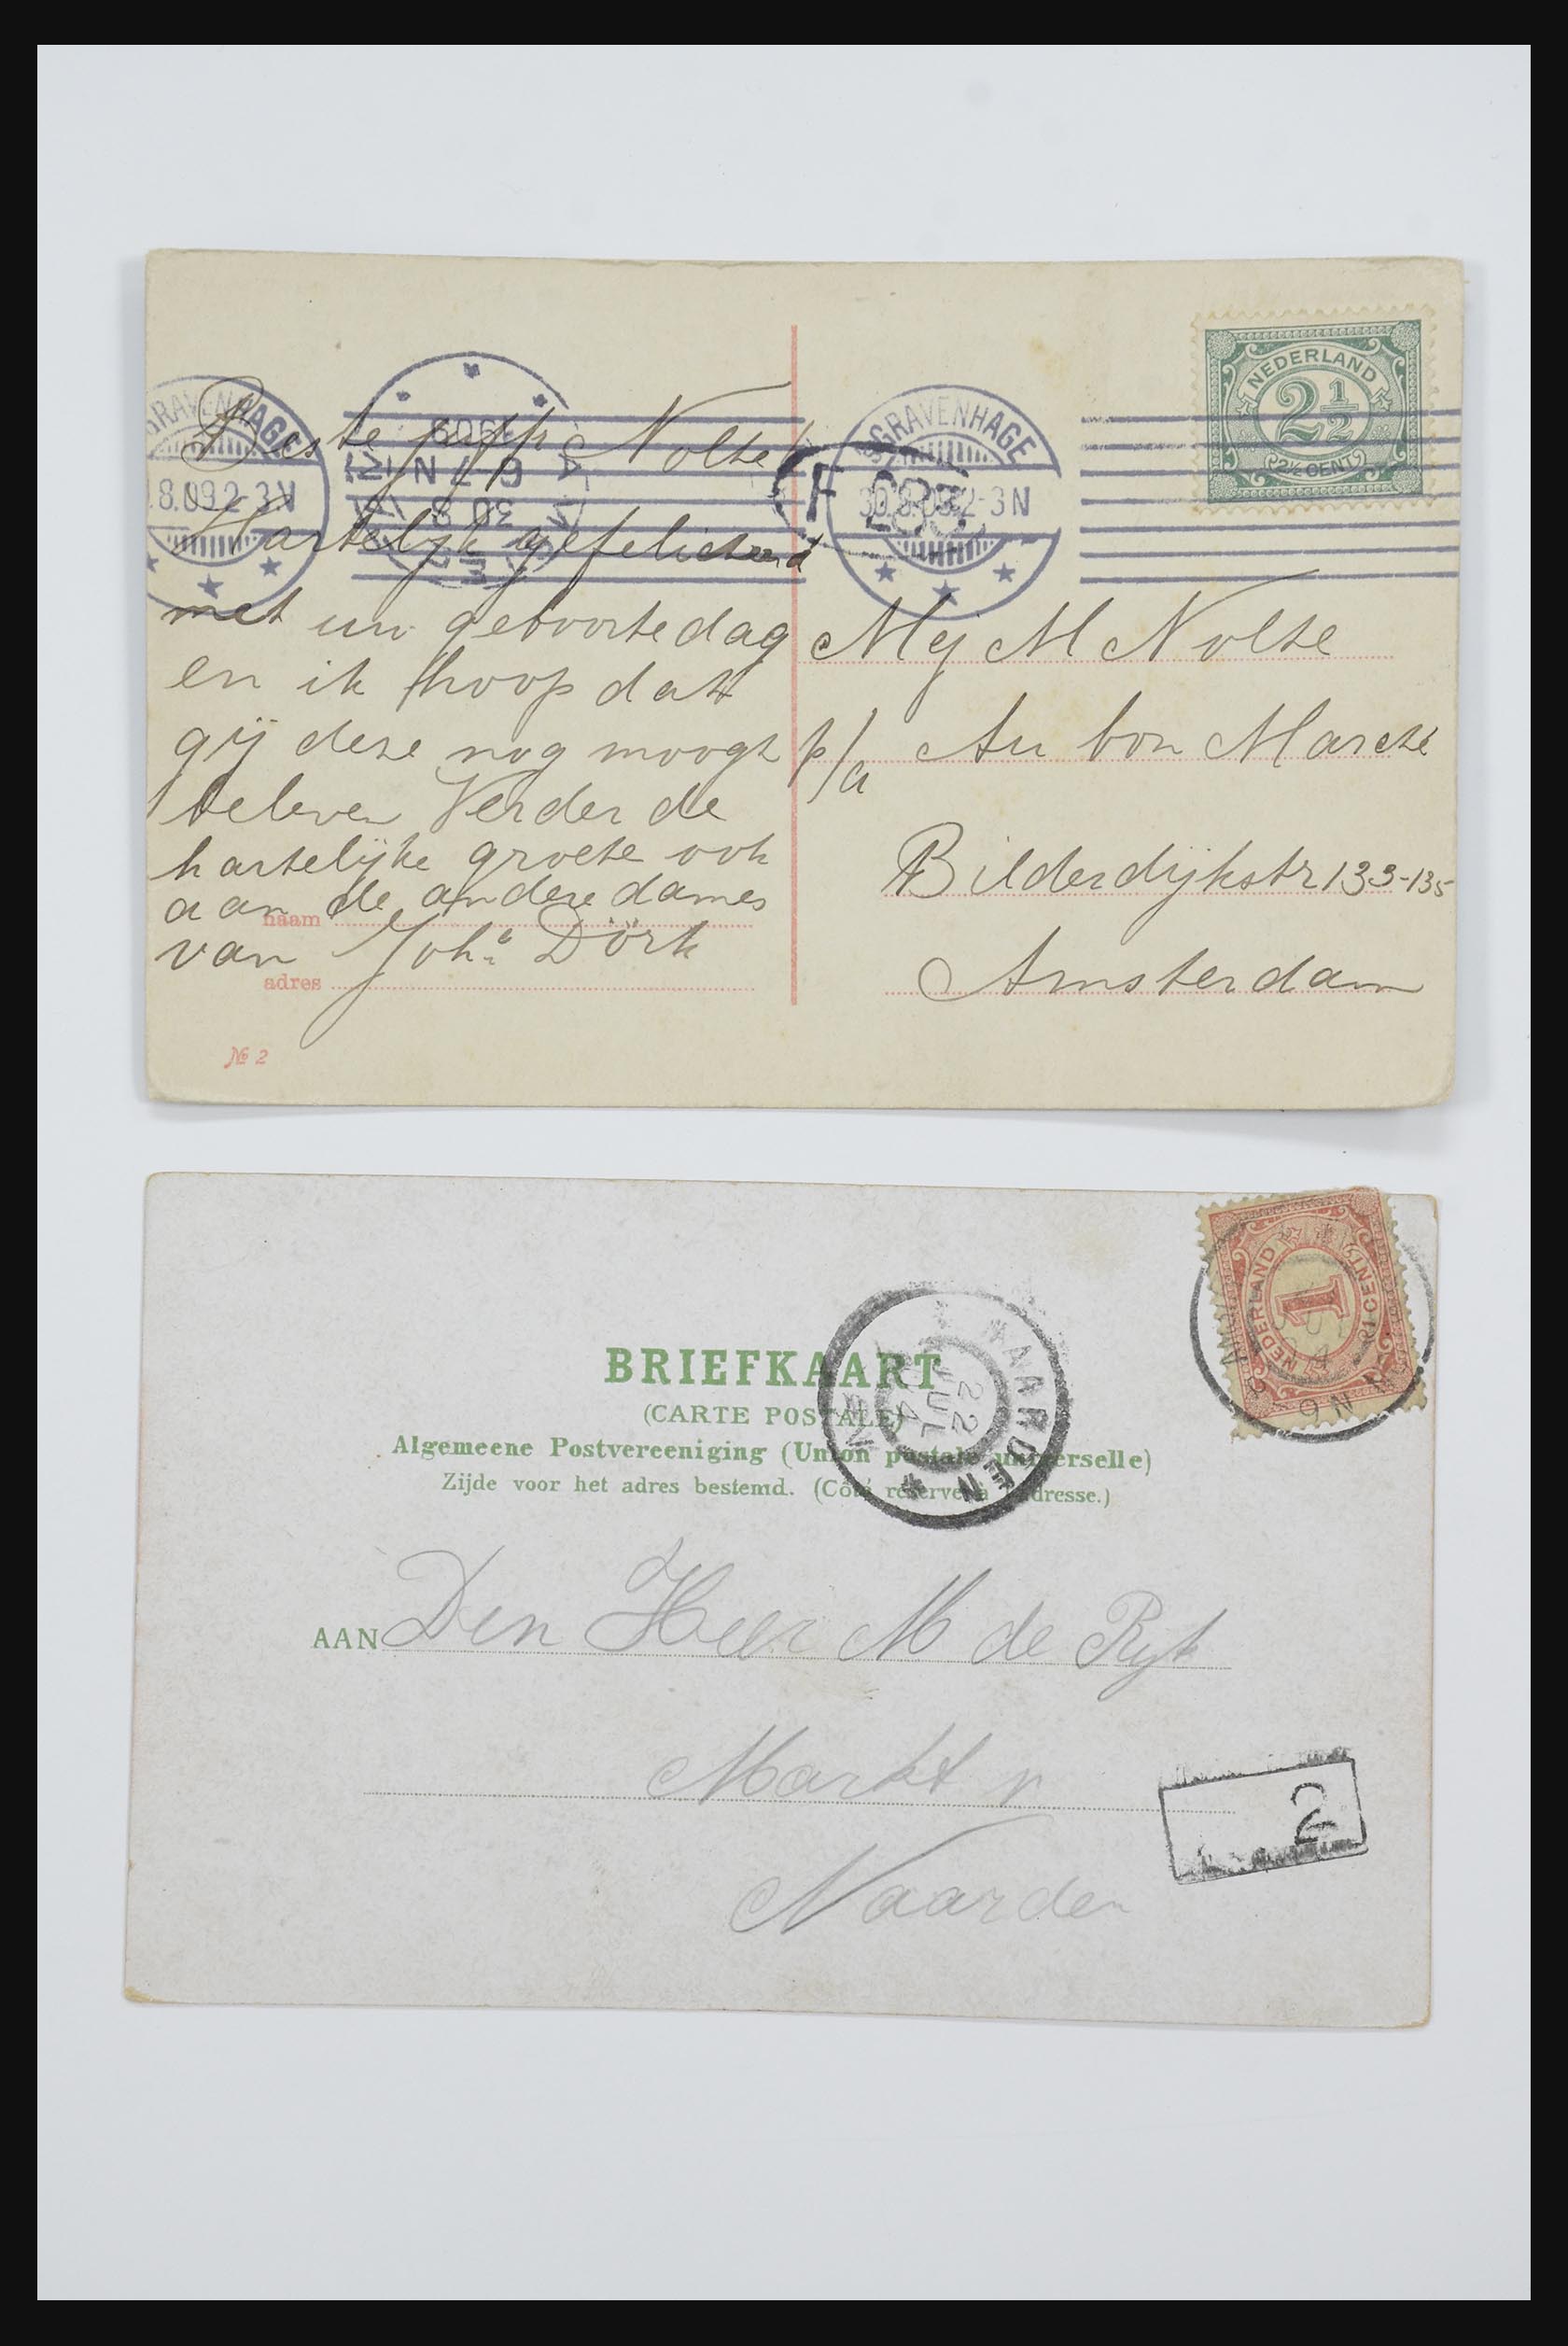 NEDERLAND
2½
2½ CENT
'S GRAVENHAGE
30.8.09 2-3N
GRAVENHAGE
.8.09 2-3N
Beste juff Nolte
Hartelijk gefeliciteerd
met uw geboortedag
en ik hoop dat
gij deze nog moogt
beleven Verder de
hartelijke groete ook
aan de andere dames
naam
van Joha Dörk
adres
№ 2
Mej M Nolte
p/a Au bon Marché
Bilderdijkstr 133-135
Amsterdam
NEDERLAND
1
1 CENT
BRIEFKAART
(CARTE POSTALE)
Algemeene Postvereeniging (Union postale universelle)
Zijde voor het adres bestemd. (Côté réservé à l'adresse.)
NAARDEN
22 JUL
AAN Den Heer M de Rijk
Markt
Naarden
2